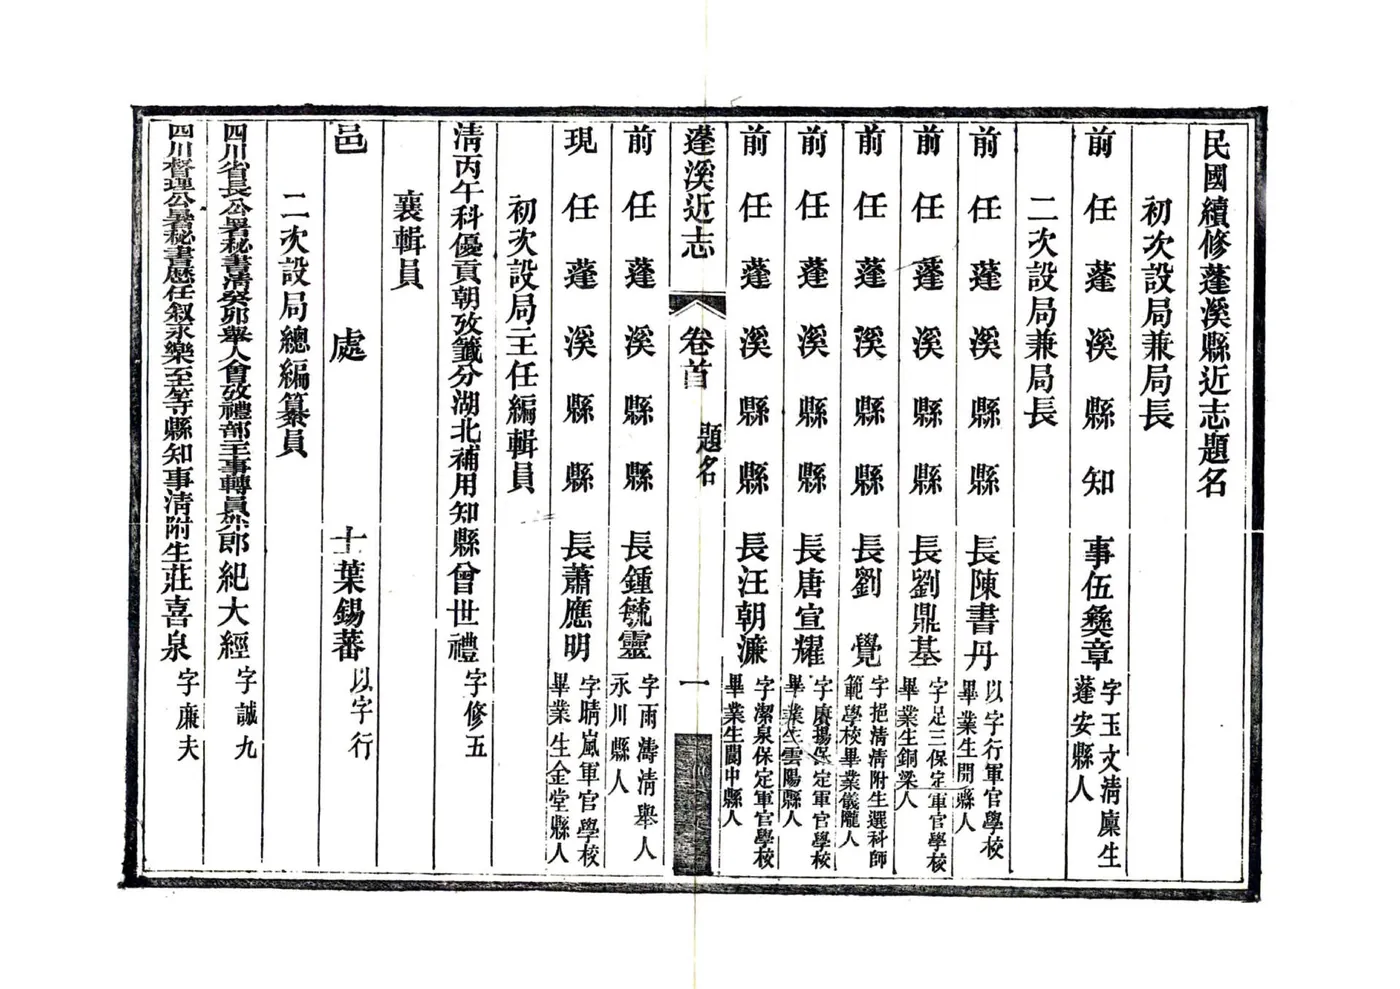 民國續修蓬溪縣近志題名
初次設局兼局長
前任蓬溪縣知事伍彝章字玉文清廩生蓬安縣人
二次設局兼局長
前任蓬溪縣縣長陳書丹以字行軍官學校畢業生開縣人
前任蓬溪縣縣長劉鼎基字足三保定軍官學校畢業生銅梁人
前任蓬溪縣縣長劉覺字挹清清附生選科師範學校畢業儀隴人
前任蓬溪縣縣長唐宣耀字賡揚保定軍官學校畢業生雲陽縣人
前任蓬溪縣縣長汪朝濂字潔泉保定軍官學校畢業生閬中縣人
蓬溪近志 卷首 題名 一
前任蓬溪縣縣長鍾毓靈字雨濤清舉人永川縣人
現任蓬溪縣縣長蕭應明字晴嵐軍官學校畢業生金堂縣人
初次設局主任編輯員
清丙午科優貢朝攷籤分湖北補用知縣曾世禮字修五
襄輯員
邑處士葉錫蕃以字行
二次設局總編纂員
四川省長公署秘書清癸卯舉人會攷禮部主事轉員外郎紀大經字誠九
四川督理公署秘書歷任敘永樂至等縣知事清附生莊喜泉字廉夫